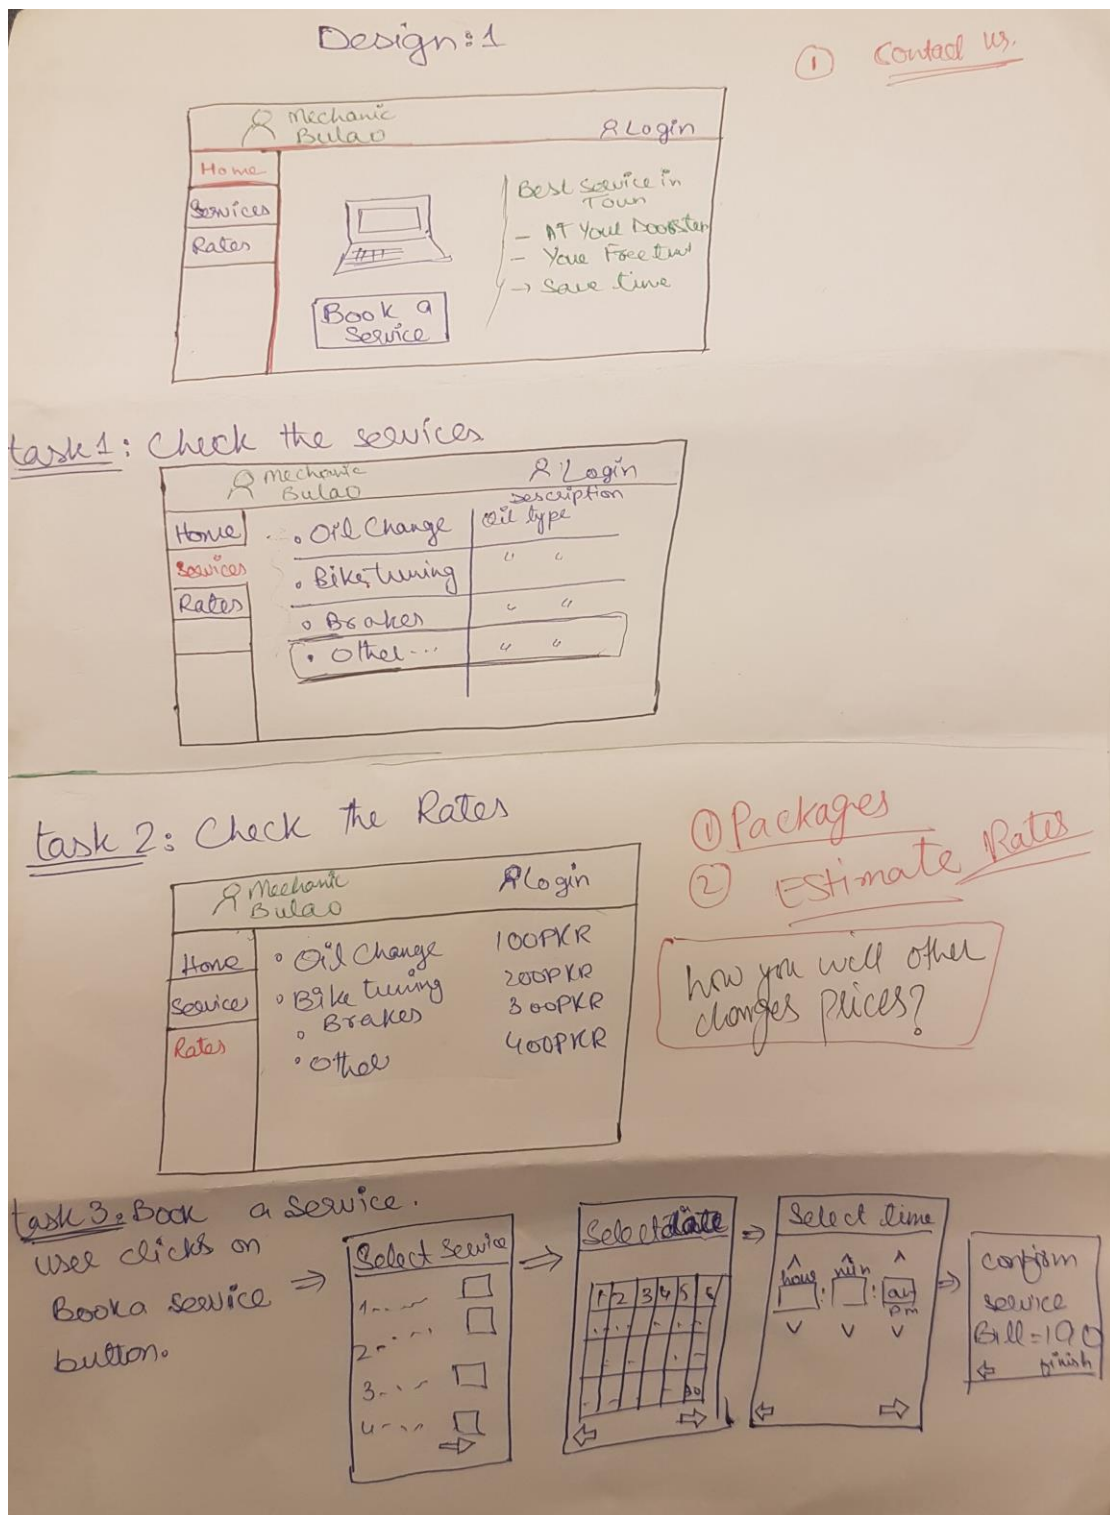 Design:1
① Contact us.
Mechanic
Bulao
Login
Home
Services
Rates
Best service in
Town
- At Your Doorstep
- Your Free
→ Save time
Book a
Service
task1: Check the services
Mechanic
Bulao
Login
Description
Home
Services
Rates
• Oil Change
Oil type
• Bike, tuning
" "
• Brakes
" "
• Other...
" "
task 2: Check the Rates
① Packages
② Estimate Rates
how you will other
changes prices?
Mechanic
Bulao
Login
Home
Services
Rates
• Oil Change 100PKR
• Bike tuning 200PKR
• Brakes 300PKR
• Other 400PKR
task 3: Book a service.
user clicks on
Book a service
button.
Select Service
1
2
3
4
Select date
1 2 3 4 5 6
30
Select time
hour : min :
pm
confirm
service
Bill = 190
finish